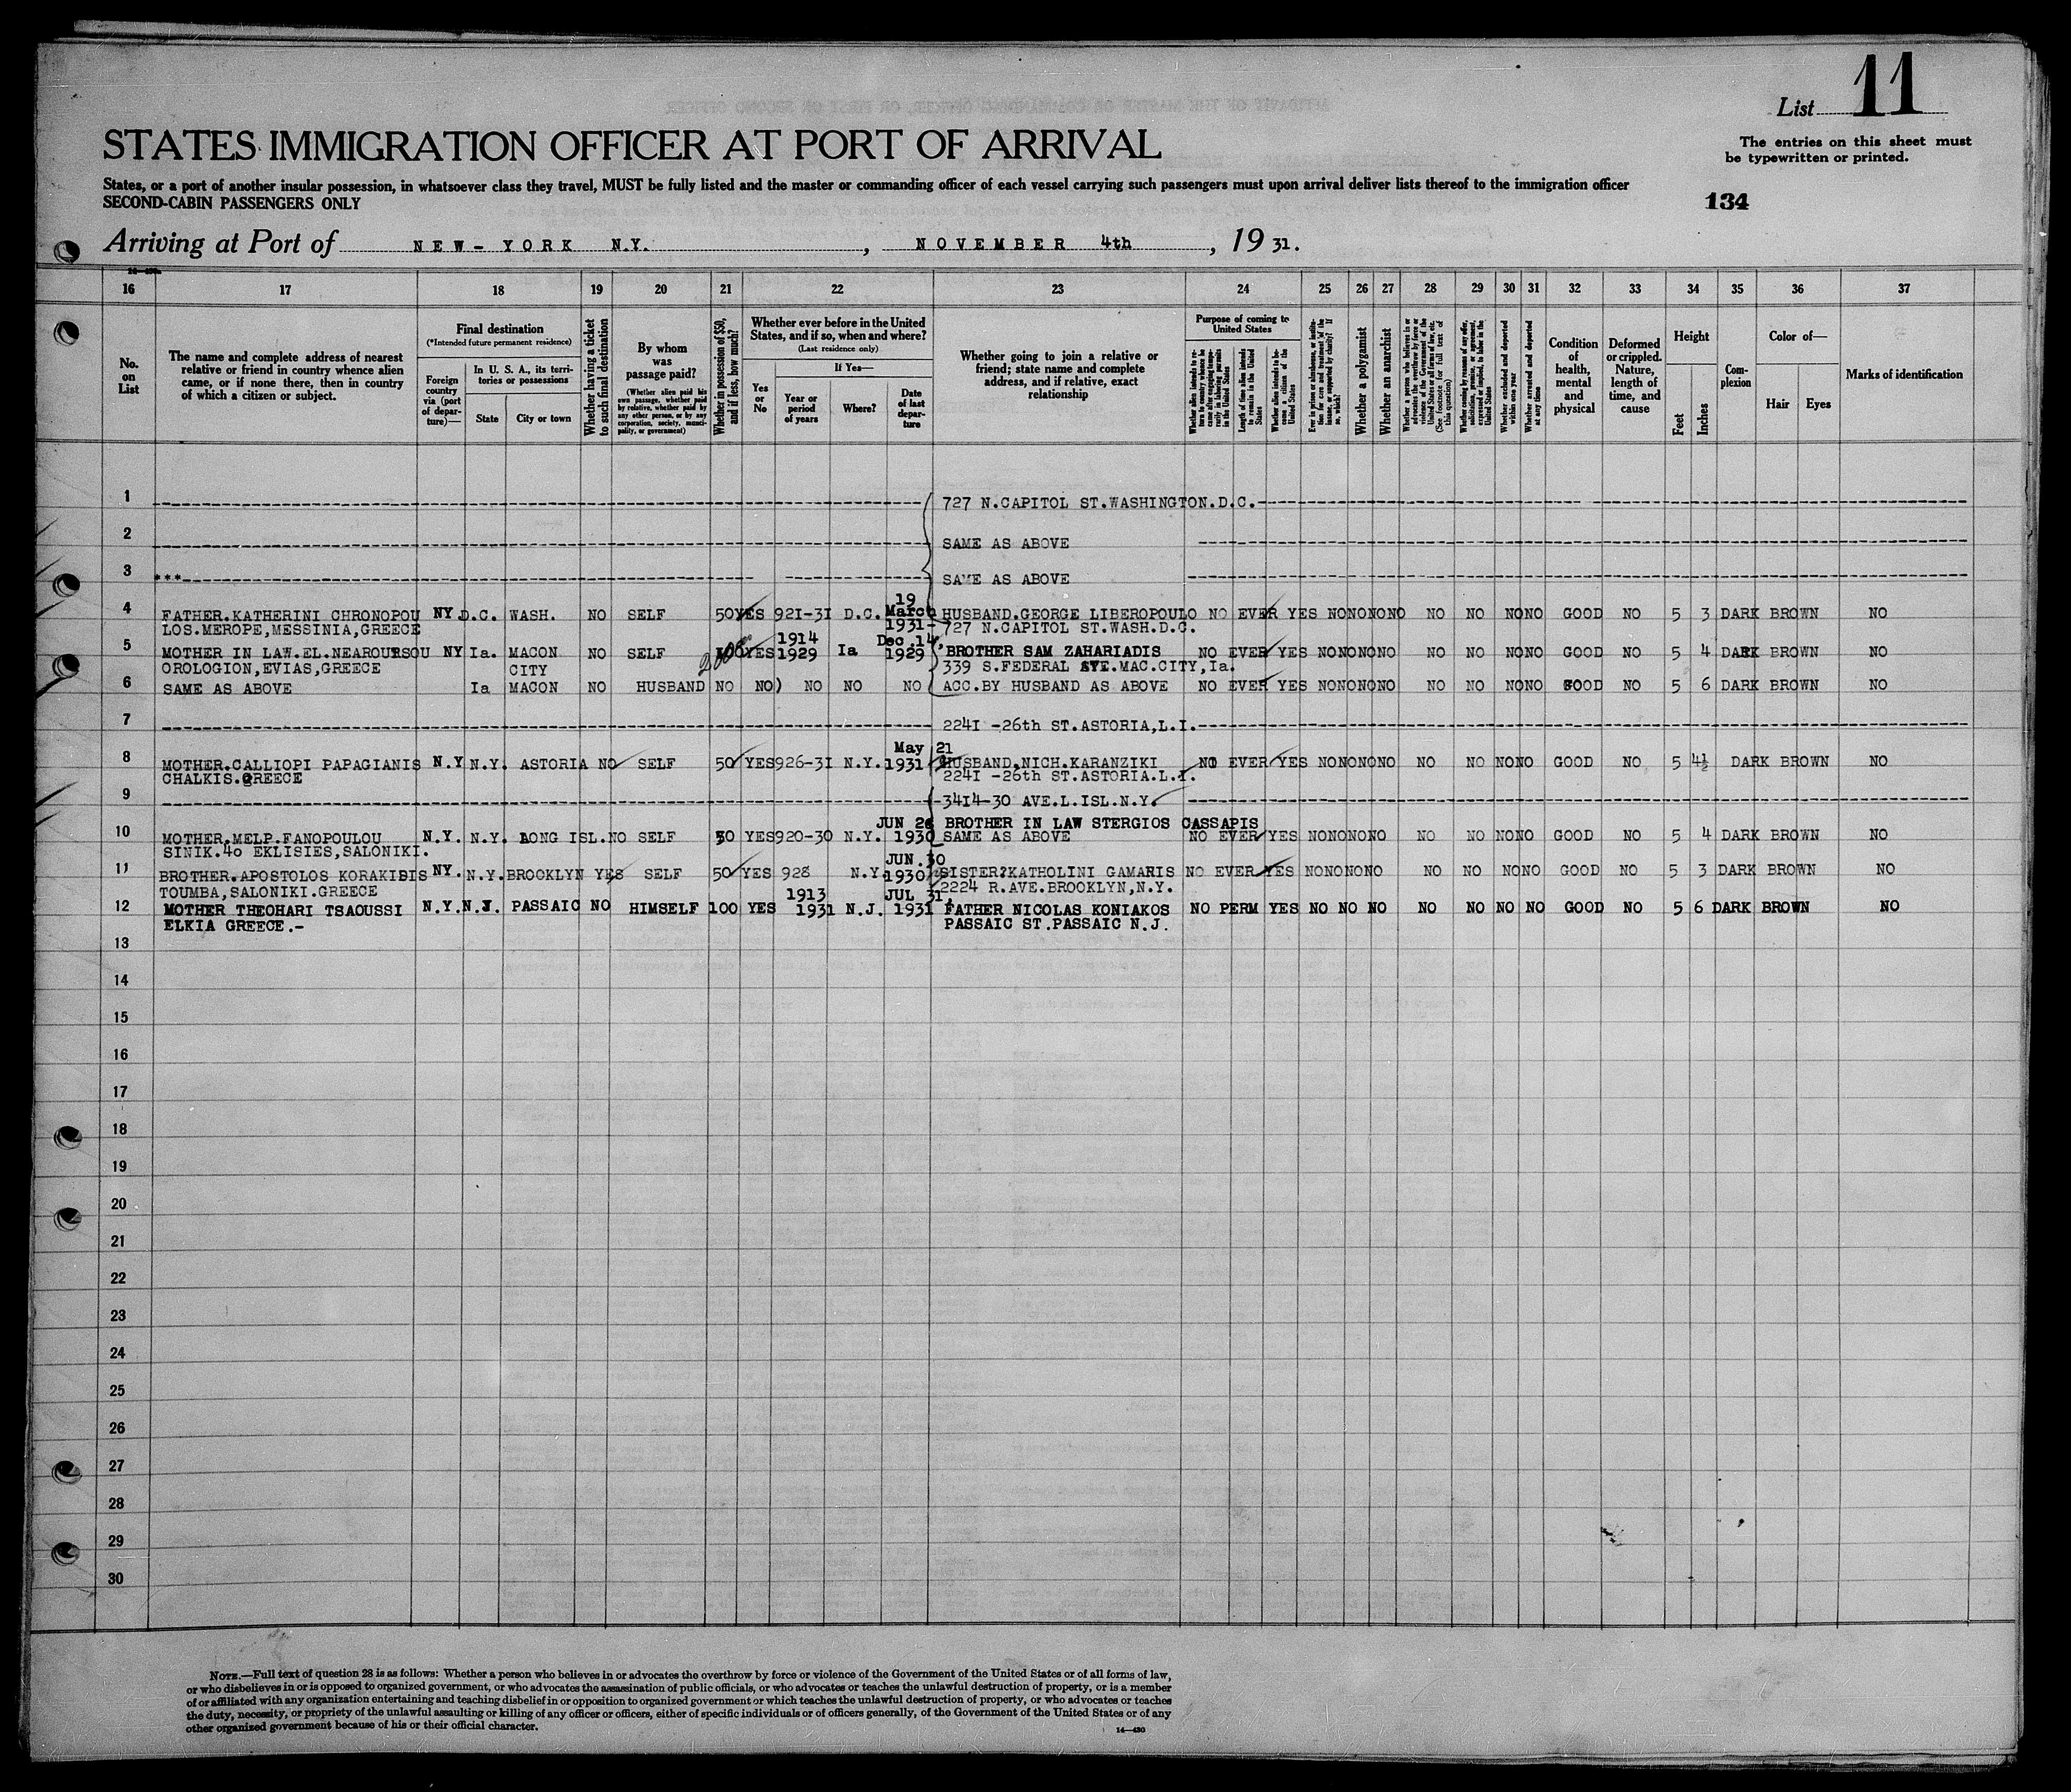 List 11
STATES IMMIGRATION OFFICER AT PORT OF ARRIVAL
The entries on this sheet must
be typewritten or printed.
States, or a port of another insular possession, in whatsoever class they travel, MUST be fully listed and the master or commanding officer of each vessel carrying such passengers must upon arrival deliver lists thereof to the immigration officer
SECOND-CABIN PASSENGERS ONLY
134
Arriving at Port of NEW-YORK N.Y. , NOVEMBER 4th , 19 31.
16 17 18 19 20 21 22 23 24 25 26 27 28 29 30 31 32 33 34 35 36 37
No. on List
The name and complete address of nearest
relative or friend in country whence alien
came, or if none there, then in country
of which a citizen or subject.
Final destination
(*Intended future permanent residence)
Foreign country via (port of departure)—
In U. S. A., its territories or possessions
State
City or town
Whether having a ticket to such final destination
By whom was passage paid?
(Whether alien paid his own passage, whether paid by relative, whether paid by any other person, or by any corporation, society, municipality, or government)
Whether in possession of $50, and if less, how much?
Whether ever before in the United States, and if so, when and where?
(Last residence only)
Yes or No
If Yes—
Year or period of years
Where?
Date of last departure
Whether going to join a relative or
friend; state name and complete
address, and if relative, exact
relationship
Purpose of coming to United States
Whether alien intends to return to country whence he came after engaging temporarily in laboring pursuits in the United States
Length of time alien intends to remain in the United States
Whether alien intends to become a citizen of the United States
Ever in prison or almshouse, or institution for care and treatment of the insane, or supported by charity? If so, which?
Whether a polygamist
Whether an anarchist
Whether a person who believes in or advocates the overthrow by force or violence of the Government of the United States or all forms of law, etc. (See footnote for full text of this question)
Whether coming by reason of any offer, solicitation, promise, or agreement, expressed or implied, to labor in the United States
Whether excluded and deported within one year
Whether arrested and deported at any time
Condition of health, mental and physical
Deformed or crippled. Nature, length of time, and cause
Height
Feet
Inches
Complexion
Color of—
Hair
Eyes
Marks of identification
1 727 N.CAPITOL ST.WASHINGTON.D.C.
2 SAME AS ABOVE
3 *** SAME AS ABOVE
19
4 FATHER.KATHERINI CHRONOPOU NY.D.C. WASH. NO SELF 50 YES 921-31 D.C. March HUSBAND.GEORGE LIBEROPOULO NO EVER YES NO NO NO NO NO NO NO NO GOOD NO 5 3 DARK BROWN NO
LOS.MEROPE,MESSINIA,GREECE 1931- 727 N.CAPITOL ST.WASH.D.C.
1914 Dec.14,
5 MOTHER IN LAW.EL.NEAROURSOU NY Ia. MACON NO SELF YES 1929 Ia 1929 BROTHER SAM ZAHARIADIS NO EVER YES NO NO NO NO NO NO NO NO GOOD NO 5 4 DARK BROWN NO
OROLOGION,EVIAS,GREECE CITY 339 S.FEDERAL AVE.MAC.CITY,Ia.
6 SAME AS ABOVE Ia MACON NO HUSBAND NO NO) NO NO NO ACC.BY HUSBAND AS ABOVE NO EVER YES NO NO NO NO NO NO NO NO GOOD NO 5 6 DARK BROWN NO
7 224I -26th ST.ASTORIA,L.I.
May 21
8 MOTHER.CALLIOPI PAPAGIANIS N.Y N.Y. ASTORIA NO SELF 50 YES 926-3I N.Y. 1931 HUSBAND,NICH.KARANZIKI NO EVER YES NO NO NO NO NO NO NO NO GOOD NO 5 4½ DARK BROWN NO
CHALKIS.GREECE 224I -26th ST.ASTORIA.L.I.
9 34I4-30 AVE.L.ISL.N.Y.
JUN 26 BROTHER IN LAW STERGIOS CASSAPIS
10 MOTHER.MELP.FANOPOULOU N.Y. N.Y. LONG ISL. NO SELF 50 YES 920-30 N.Y. 1930 SAME AS ABOVE NO EVER YES NO NO NO NO NO NO NO NO GOOD NO 5 4 DARK BROWN NO
SINIK.4o EKLISIES,SALONIKI.
JUN.30
11 BROTHER.APOSTOLOS KORAKIDIS NY. N.Y. BROOKLYN YES SELF 50 YES 928 N.Y. 1930 SISTER?KATHOLINI GAMARIS NO EVER YES NO NO NO NO NO NO NO NO GOOD NO 5 3 DARK BROWN NO
TOUMBA,SALONIKI.GREECE 2224 R.AVE.BROOKLYN,N.Y.
1913 JUL 31,
12 MOTHER THEOHARI TSAOUSSI N.Y. N.J. PASSAIC NO HIMSELF 100 YES 1931 N.J. 1931 FATHER NICOLAS KONIAKOS NO PERM YES NO NO NO NO NO NO NO GOOD NO 5 6 DARK BROWN NO
ELKIA GREECE.- PASSAIC ST.PASSAIC N.J.
13
14
15
16
17
18
19
20
21
22
23
24
25
26
27
28
29
30
NOTE.—Full text of question 28 is as follows: Whether a person who believes in or advocates the overthrow by force or violence of the Government of the United States or of all forms of law,
or who disbelieves in or is opposed to organized government, or who advocates the assassination of public officials, or who advocates or teaches the unlawful destruction of property, or is a member
of or affiliated with any organization entertaining and teaching disbelief in or opposition to organized government or which teaches the unlawful destruction of property, or who advocates or teaches
the duty, necessity, or propriety of the unlawful assaulting or killing of any officer or officers, either of specific individuals or of officers generally, of the Government of the United States or of any
other organized government because of his or their official character.
14—430